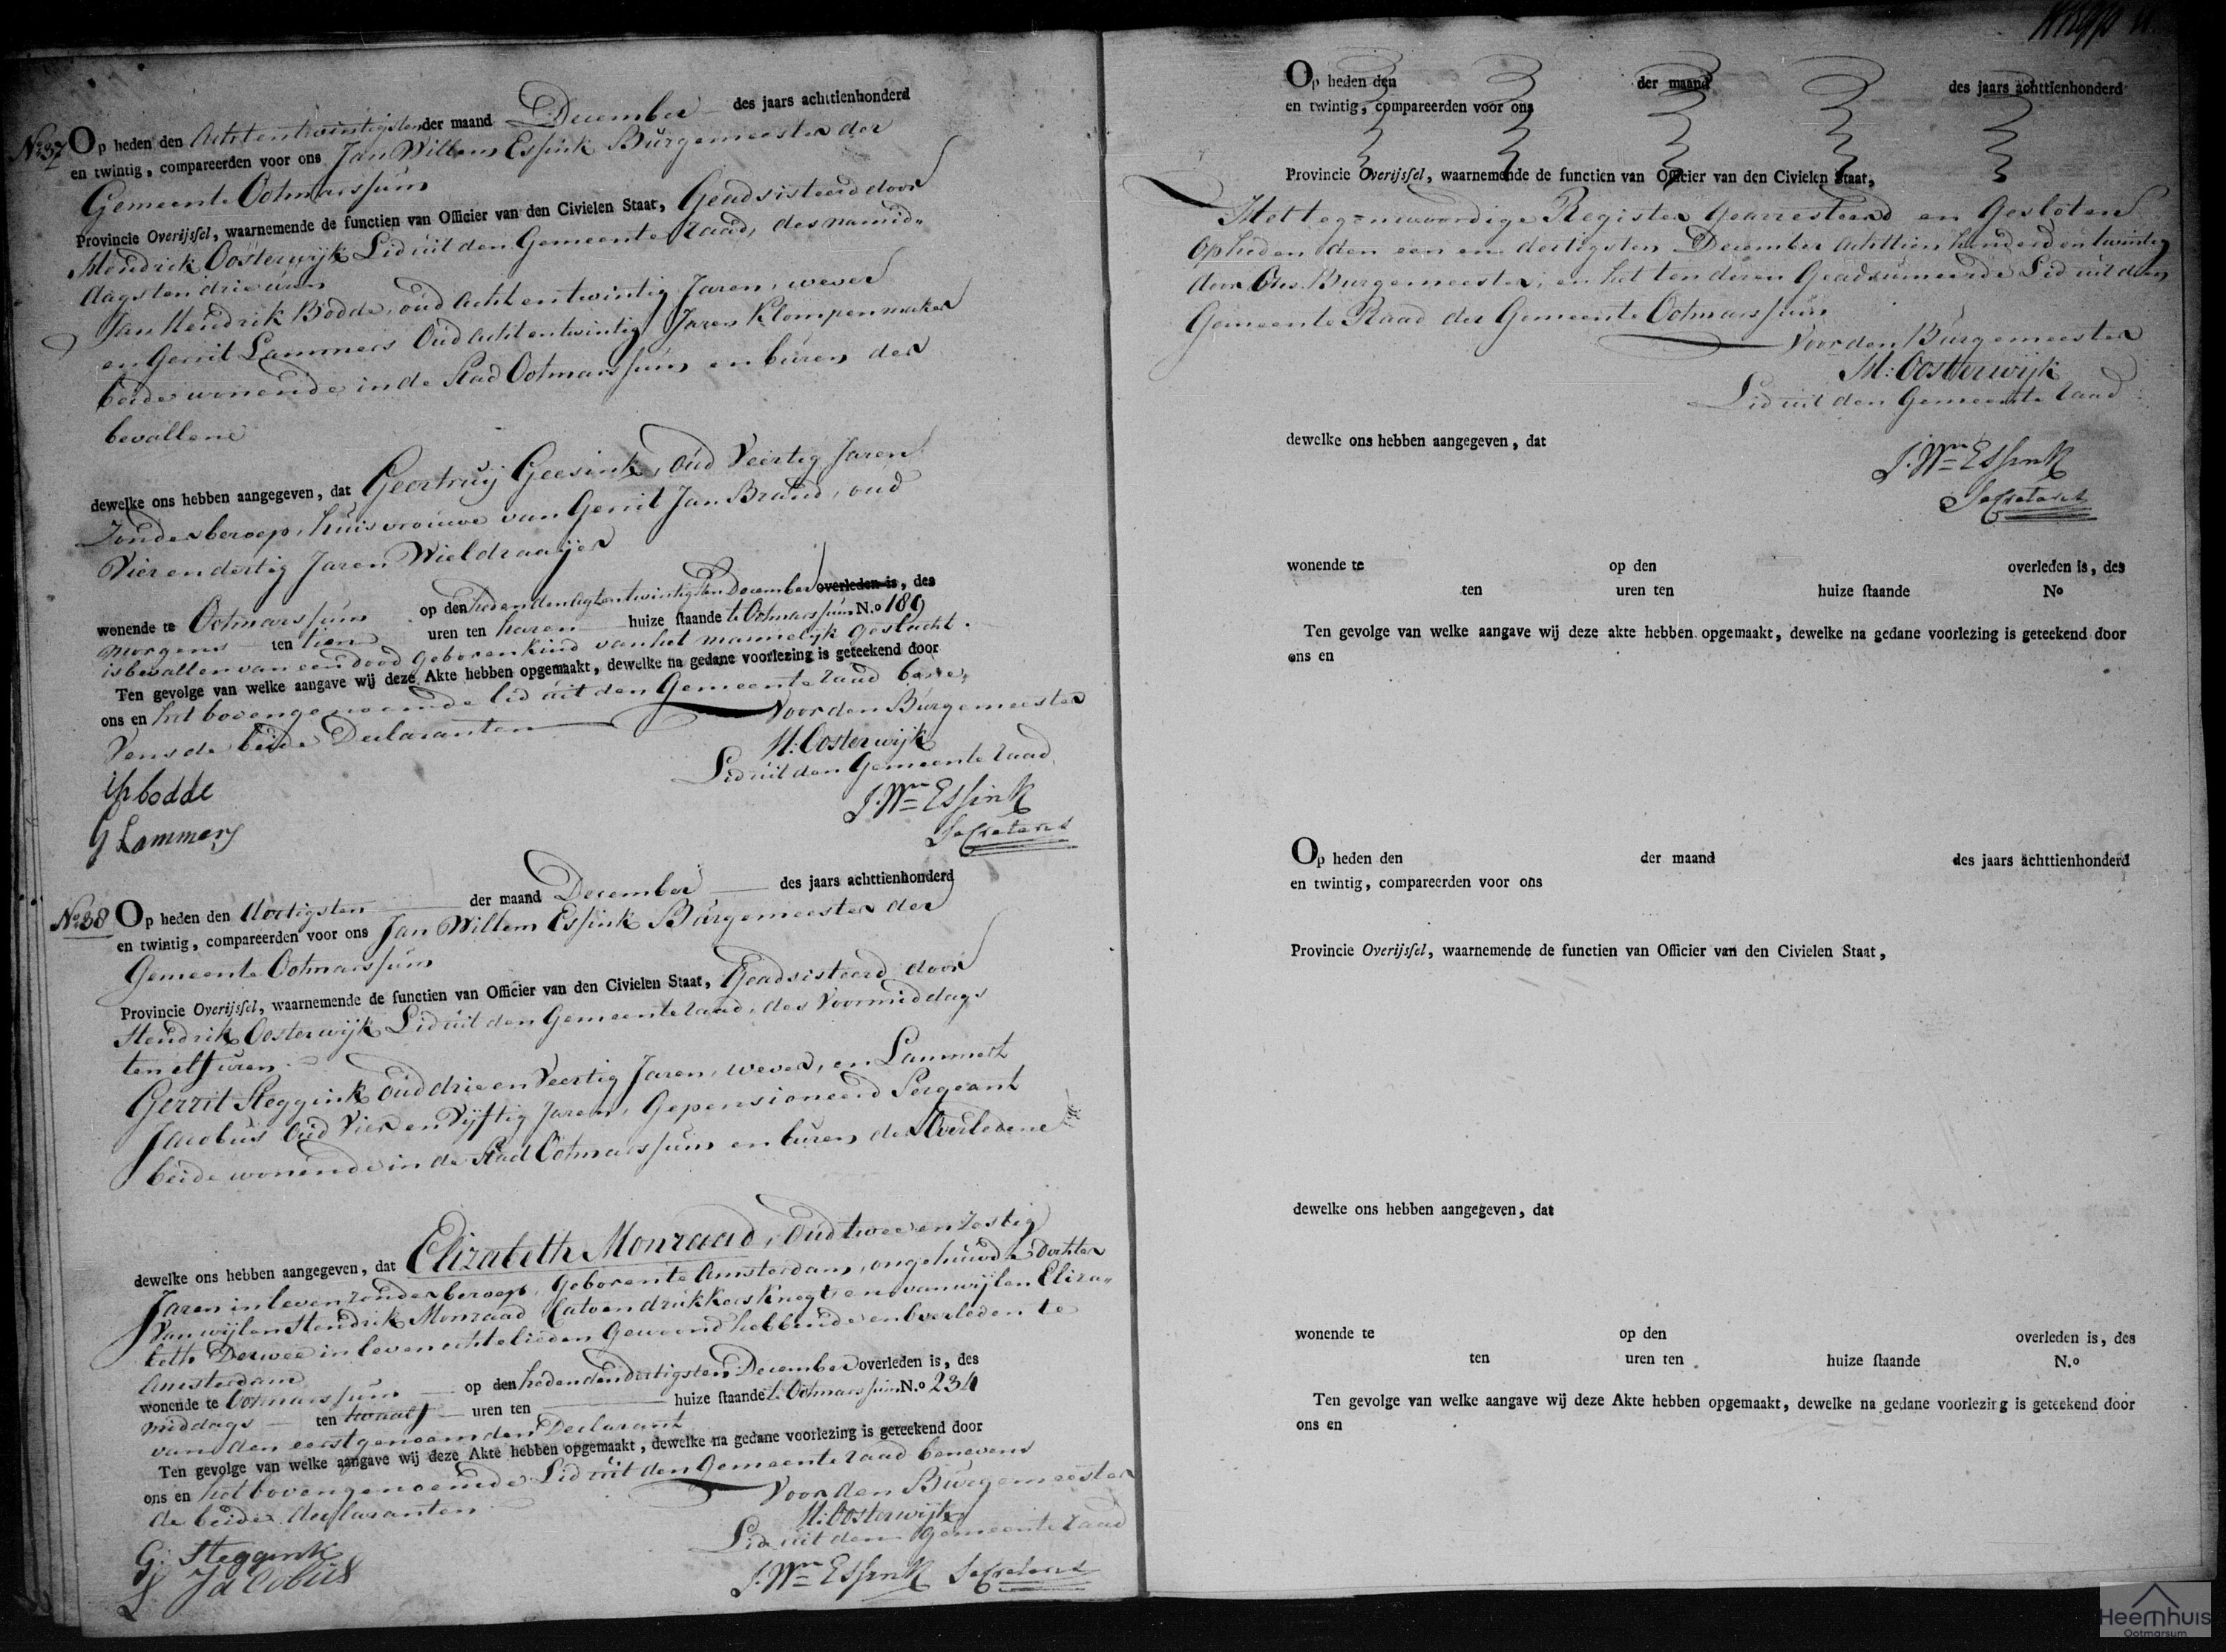 No 37 Op heden den Achtentwintigsten der maand December des jaars achttienhonderd
en twintig, compareerden voor ons Jan Willem Essink Burgemeester der
Gemeente Ootmarssum
Provincie Overijssel, waarnemende de functien van Officier van den Civielen Staat, Geadsisteerd door
Hendrik Oosterwijk Lid uit den Gemeente raad, des namid„
dags ten drie uren
Jan Hendrik Bodde, oud acht en twintig Jaren, wever
en Gerrit Lammers Oud acht en twintig Jaren Klompenmaker
beide wonende in de Stad Ootmarssum en buren der
bevallene
dewelke ons hebben aangegeven, dat Geertruij Geesink, Oud Veertig Jaren
Zonder beroep, huisvrouwe van Gerrit Jan Brand, oud
Vier en dertig Jaren Wieldraaijer
wonende te Ootmarssum op den heden den Agtentwintigsten December overleden is, des
morgens ten tien uren ten haren huize staande te Ootmarssum N.o 189
is bevallen van een dood geboren kind van het mannelijk geslacht.
Ten gevolge van welke aangave wij deze Akte hebben opgemaakt, dewelke na gedane voorlezing is geteekend door
ons en het bovengenoemde lid uit den Gemeente raad bene„
vens de beide Declaranten
Voor den Burgemeester
H: Oosterwijk
Lid uit den Gemeente raad
bodde
J. Wm Essink
G Lammers
Secretaris
No 38 Op heden den dertigsten der maand December des jaars achttienhonderd
en twintig, compareerden voor ons Jan Willem Essink Burgemeester der
Gemeente Ootmarssum
Provincie Overijssel, waarnemende de functien van Officier van den Civielen Staat, Geadsisteerd door
Hendrik Oosterwijk Lid uit den Gemeente raad, des Voormiddags
ten elf uren
Gerrit Steggink Oud drie en Veertig Jaren, wever, en Lammert
Jacobus Oud Vier en Vijftig Jaren, Gepensioneerd Sergeant
beide wonende in de Stad Ootmarssum en buren der Overledene
dewelke ons hebben aangegeven, dat Elizabeth Monraad, Oud twee en zestig
Jaren in leven zonder beroep, Geboren te Amsterdam, ongehuwde Dochter
Van wijlen Hendrik Monraad Catoendrukkersknegt, en van wijlen Eliza„
beth Derwee in leven echtelieden Gewoond hebbende en overleden te
Amsterdam
wonende te Ootmarssum op den heden den dertigsten December overleden is, des
middags ten twaalf uren ten huize staande te Ootmarssum N.o 234
van den eerstgenoemden Declarant
Ten gevolge van welke aangave wij deze Akte hebben opgemaakt, dewelke na gedane voorlezing is geteekend door
ons en het bovengenoemde Lid uit den Gemeente raad benevens
de beide declaranten
Voor den Burgemeester
H: Oosterwijk
Lid uit den Gemeente raad
G: Steggink
L Jacobus
J. Wm Essink Secretaris
Op heden den der maand des jaars achttienhonderd
en twintig, compareerden voor ons
Provincie Overijssel, waarnemende de functien van Officier van den Civielen Staat,
Het tegenwoordige Register Gearresteerd en Gesloten
Op heden den een en dertigsten December achttien honderd en twintig
door Ons Burgemeester, en het ten dezen Geadsumeerde Lid uit den
Gemeente Raad der Gemeente Ootmarssum
Voor den Burgemeester
H: Oosterwijk
Lid uit den Gemeente raad
dewelke ons hebben aangegeven, dat
J. Wm Essink
Secretaris
wonende te op den overleden is, des
ten uren ten huize staande No
Ten gevolge van welke aangave wij deze akte hebben opgemaakt, dewelke na gedane voorlezing is geteekend door
ons en
Op heden den der maand des jaars achttienhonderd
en twintig, compareerden voor ons
Provincie Overijssel, waarnemende de functien van Officier van den Civielen Staat,
dewelke ons hebben aangegeven, dat
wonende te op den overleden is, des
ten uren ten huize staande N.o
Ten gevolge van welke aangave wij deze Akte hebben opgemaakt, dewelke na gedane voorlezing is geteekend door
ons en
Heemhuis
Ootmarsum